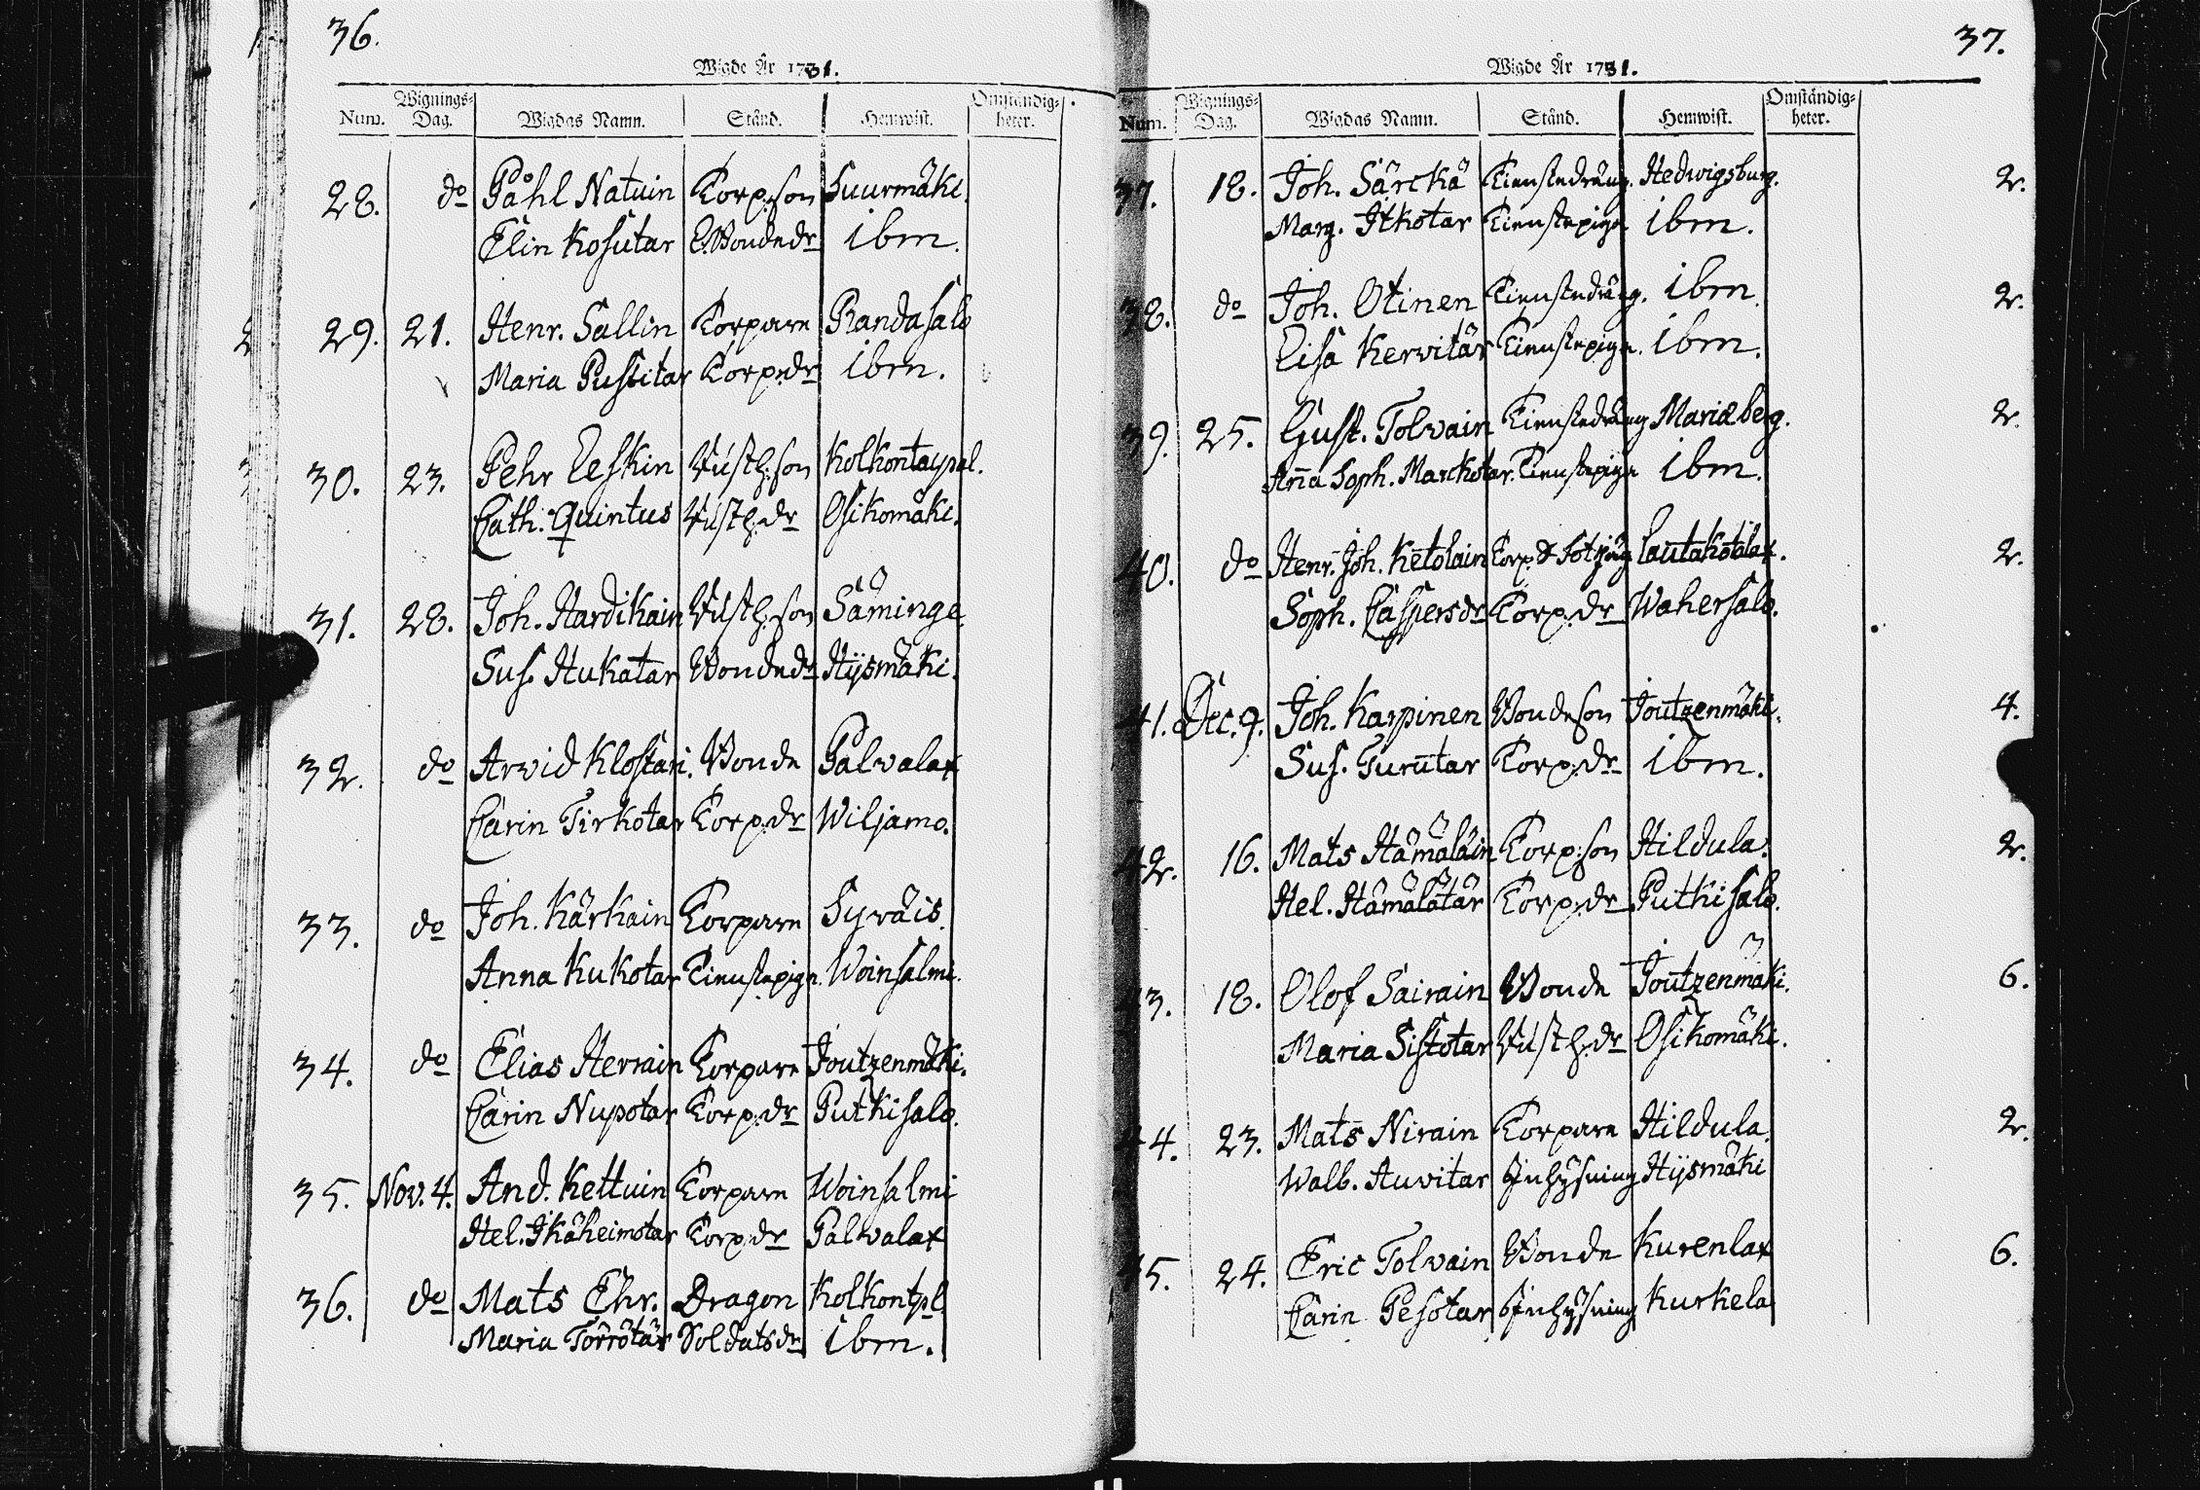 36.
Wigde År 1781.
Num. Wignings-Dag. Wigdas Namn. Stånd. Hemwist. Omständig-heter.
28. do Påhl Natuin Torp:son Suurmäki.
Elin Kosutar Bondedr ibm.
29. 21. Henr. Sallin Torpare Randasalo
Maria Pussitar Torp:dr ibm.
30. 23. Pehr Leskin Rusth:son Kolkontaypal.
Cath. Quintus Rusth:dr Osikomäki.
31. 28. Joh. Hardikain Rusth:son Säminge.
Sus. Hukatar Bondedr Hÿsmäki.
32. do Arvid Klostari. Bonde Palvalax
Carin Tirkotar Torp:dr Wiljamo.
33. do Joh. Kärkain Torpare Syväis.
Anna Kukotar Tienstepiga Woinsalmi.
34. do Elias Herrain Torpare Joutzenmäki.
Carin Nupotar Torp:dr Putkisalo.
35. Nov. 4. And. Kettuin Torpare Woinsalmi
Hel. Ikäheimotar Torp:dr Palvalax
36. do Mats Ehr. Dragon Kolkontpl
Maria Torrötär Soldatsdr ibm.
37.
Wigde År 1781.
Num. Wignings-Dag. Wigdas Namn. Stånd. Hemwist. Omständig-heter.
37. 18. Joh. Särckä Tienstedräng. Hedwigsburg. 2.
Marg. Itkotar Tienstepiga ibm.
38. do Joh. Otinen Tienstedräng. ibm. 2.
Lisa Kervitär Tienstepiga. ibm.
39. 25. Gust. Tolvain Tienstedräng Mariæberg. 2.
Aña Soph. Marckotar. Tienstepiga ibm.
40. do Henr. Joh. Ketolain Torp. Lautakotalax. 2.
Soph. Caspersdr Torp:dr Wahersalo.
41. Dec. 9. Joh. Karpinen Bondeson Joutzenmäki. 4.
Sus. Turutar Torp:dr ibm.
42. 16. Mats Hämäläin Torp:son Hildula. 2.
Hel. Hämälätär Torp:dr Putkisalo.
43. 18. Olof Sairain Bonde Joutzenmäki. 6.
Maria Sistotar Rusth:dr Osikomäki.
44. 23. Mats Nirain Torpare Hildula. 2.
Walb. Auvitar Inhysning Hÿsmäki
45. 24. Eric Tolvain Bonde Kurenlax 6.
Carin Pesotar Inhysning Kurkela